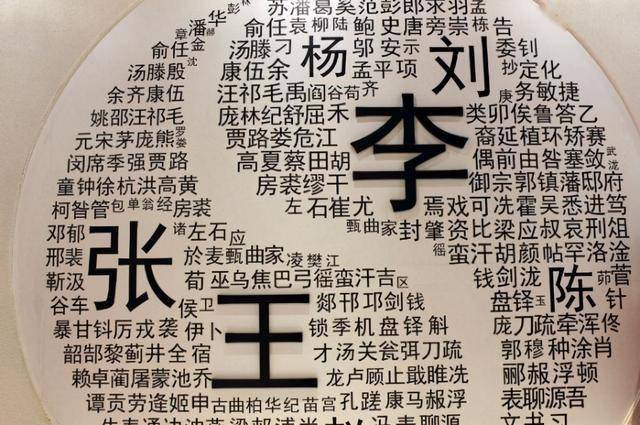 彭林 苏潘葛奚范彭郎求羽孟
潘 华 俞任袁柳陆鲍史唐旁崇栋告
章俞任金 汤滕刁 杨 邬安示 刘 委钊
汤滕殷沈 康伍余 孟平项 抄定化
余齐康伍 汪祁毛禹阎谷荀齐 庚务敏捷
姚邵汪祁毛 庞林纪舒屈禾 李 类卯俟鲁答乙
元宋茅庞熊罗娄 贾路娄危江 裔延植环矫赛
闵席季强贾路 高夏蔡田胡 偶前由昝塞敛
童钟徐杭洪高黄 房裘缪干 御宗郭镇藩邸府
柯昝管包单翁经房裘 左石崔尤 焉戏可冼霍吴悉进笃
邓郁 张 诸左石应 甄曲家封肇资比梁应叔哀刑俎
邢裴 於麦甄曲家凌樊江 蛮汗胡颜帖罗洛淦
靳汲 荀巫乌焦巴弓徭蛮汗吉区 钱剑泷 陈 菅
谷车 侯卫 王 郯邗邛剑钱 盘铎玉 针
暴甘钭厉戎袭伊卜 锁季机盘铎斛 庞刀疏牵浑佟
韶郜黎蓟井全宿 才汤关瓮弭刀疏 郭穆种涂肖
赖卓蔺屠蒙池乔 龙卢顾止戢睢冼 郦郝浮顿
谭贡劳逄姬申古曲柏华纪苗宫孔蹉康马郝浮 表聊源吾